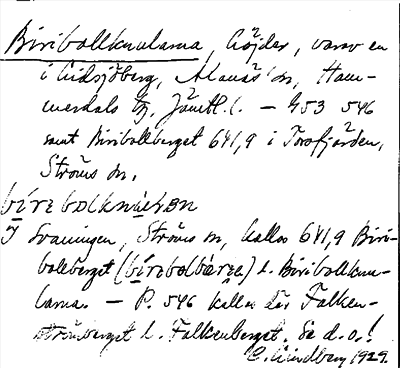 Biribollknularna, höjder, varav en
i Gidsjöberg, Alanäs sn, Ham-
merdals tg, Jämtl. l. — 453 546
samt Biribollberget 641,9 i Torsfjärden,
Ströms sn.
I Svaningen, Ströms sn, kallas 641,9 Biri-
boleberget l. Biribollknu-
larna. — P. 546 kallas där Falken-
strömsberget l. Falkenberget. Se d. o.!
E. Lindberg 1929.